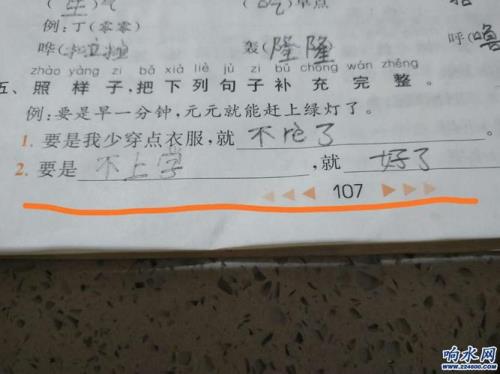 (生)气 (吃)早点
例:丁(零零)
哗(啦啦) 轰(隆隆) 呼(噜
zhào yàng zi bǎ xià liè jù zi bǔ chōng wán zhěng
五、照样子,把下列句子补充完整。
例:要是早一分钟,元元就能赶上绿灯了。
1. 要是我少穿点衣服,就不 了。
2. 要是不上学,就好了
107
响水网
www.224600.com